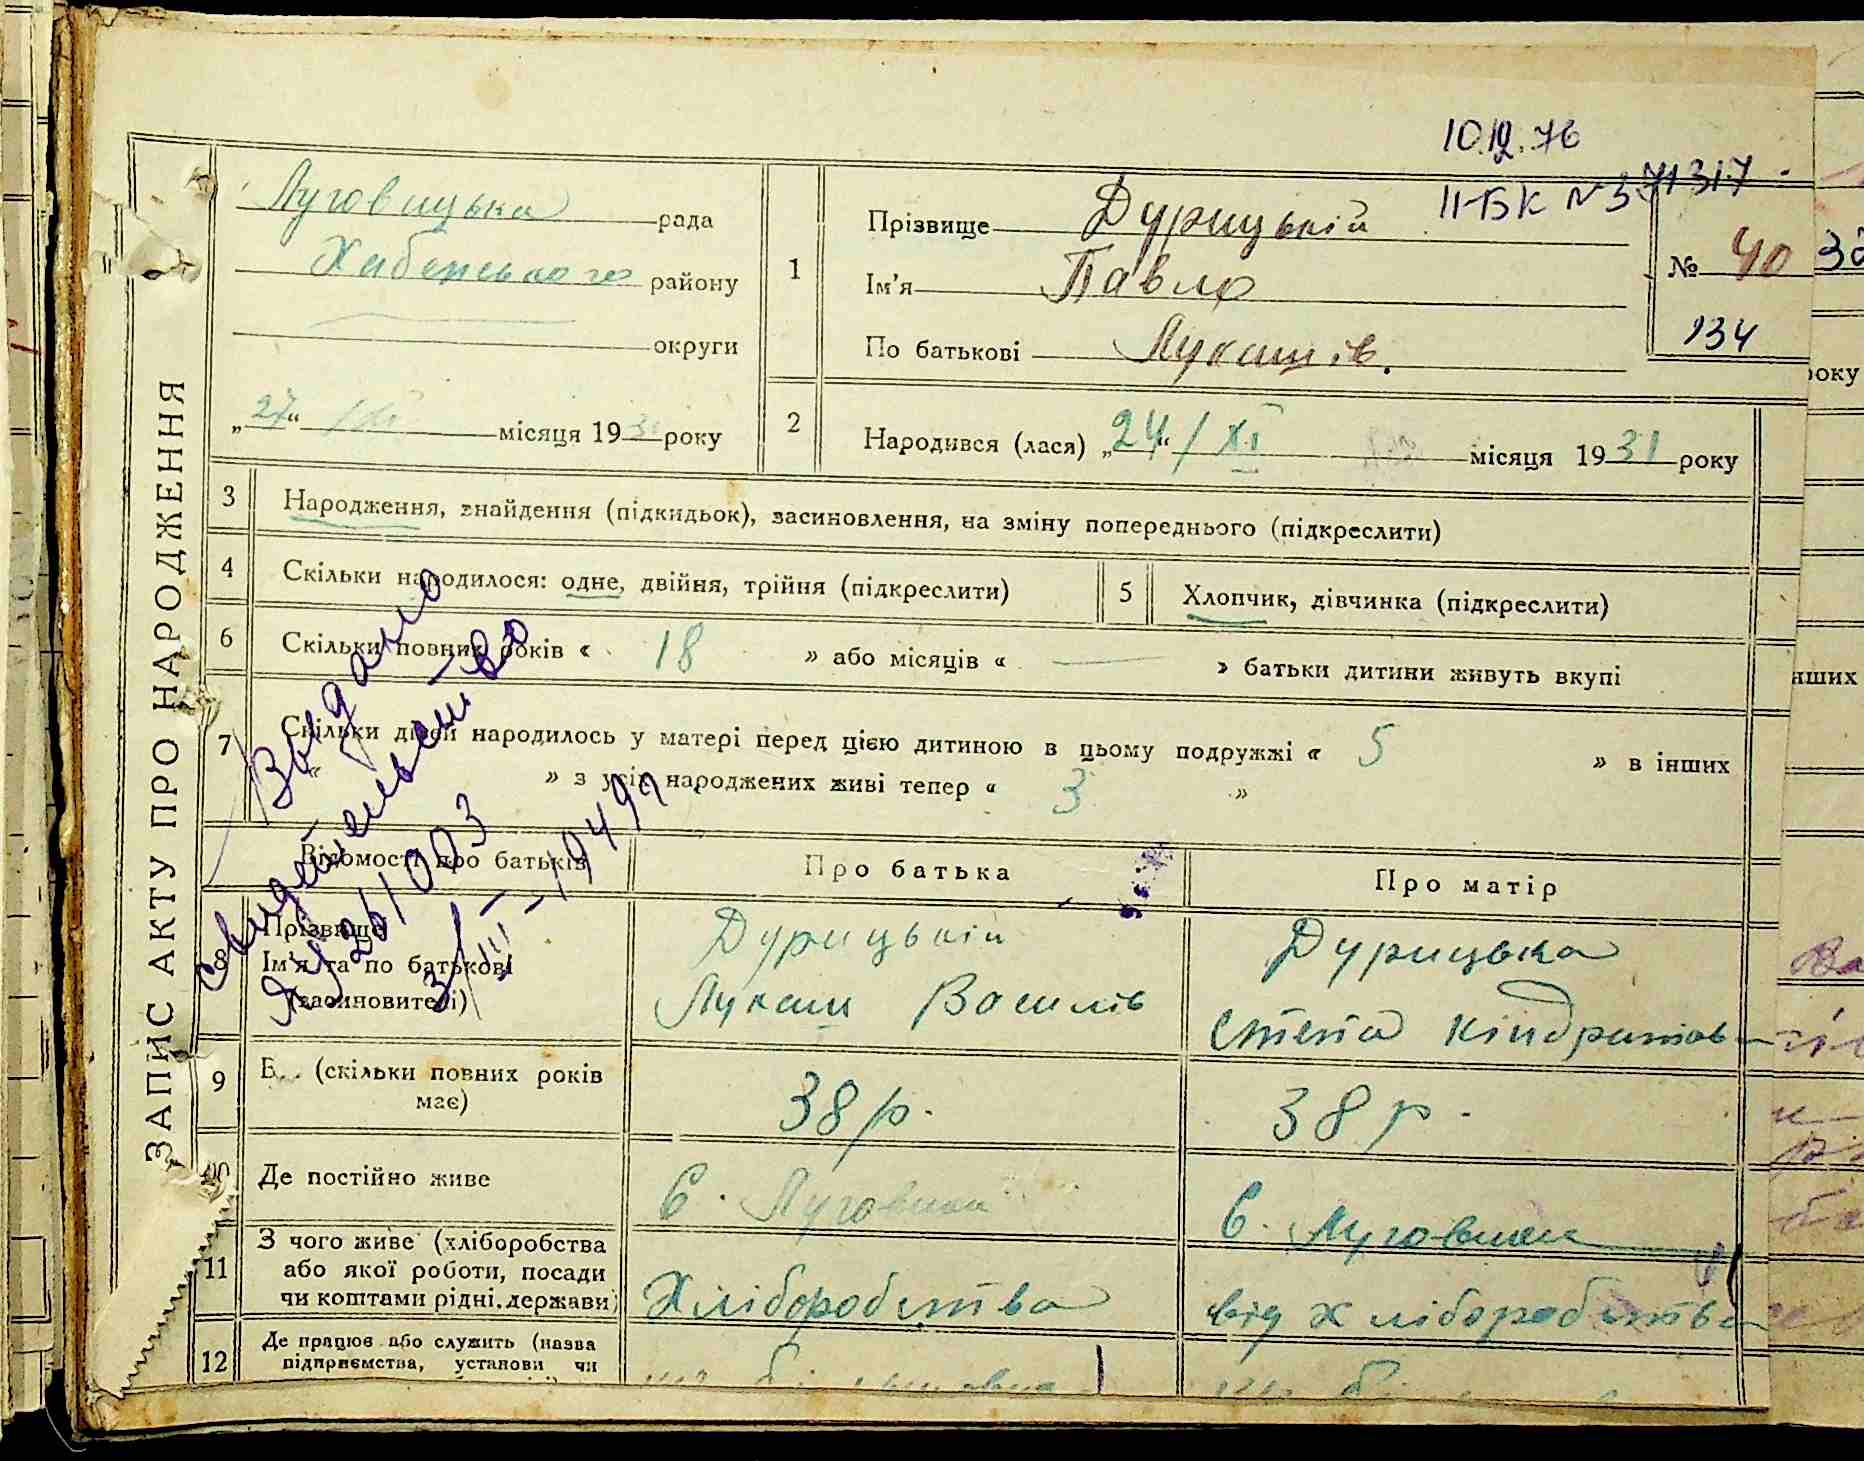 10.12.76
II-БК N 371317
Луговицька рада
Хабенського району
округи
„27“ місяця 193 року
1
Прізвище Дурицький
Ім'я Павло
По батькові Лукашів.
№ 40
134
2
Народився (лася) „24“ / XI місяця 1931 року
ЗАПИС АКТУ ПРО НАРОДЖЕННЯ
3 Народження, знайдення (підкидьок), засиновлення, на зміну попереднього (підкреслити)
4 Скільки народилося: одне, двійня, трійня (підкреслити)
5 Хлопчик, дівчинка (підкреслити)
6 Скільки повних років « 18 » або місяців « — » батьки дитини живуть вкупі
7 Скільки дітей народилось у матері перед цією дитиною в цьому подружжі « 5 » в інших
« » з усіх народжених живі тепер « 3 »
Выдано
свидетельство
261003
III-1949
Відомості про батьків
Про батька
Про матір
8 Прізвище
Ім'я та по батькові
(засиновителі)
Дурицький
Лукаш Василів
Дурицька
Степа Кіндратов
9 (скільки повних років
має)
38 р.
38 р.
10 Де постійно живе
с. Луговики
с. Луговики
11 З чого живе (хліборобства
або якої роботи, посади
чи коштами рідні. держави)
Хліборобства
від хліборобства
12 Де працює або служить (назва
підприємства, установи чи
року
інших